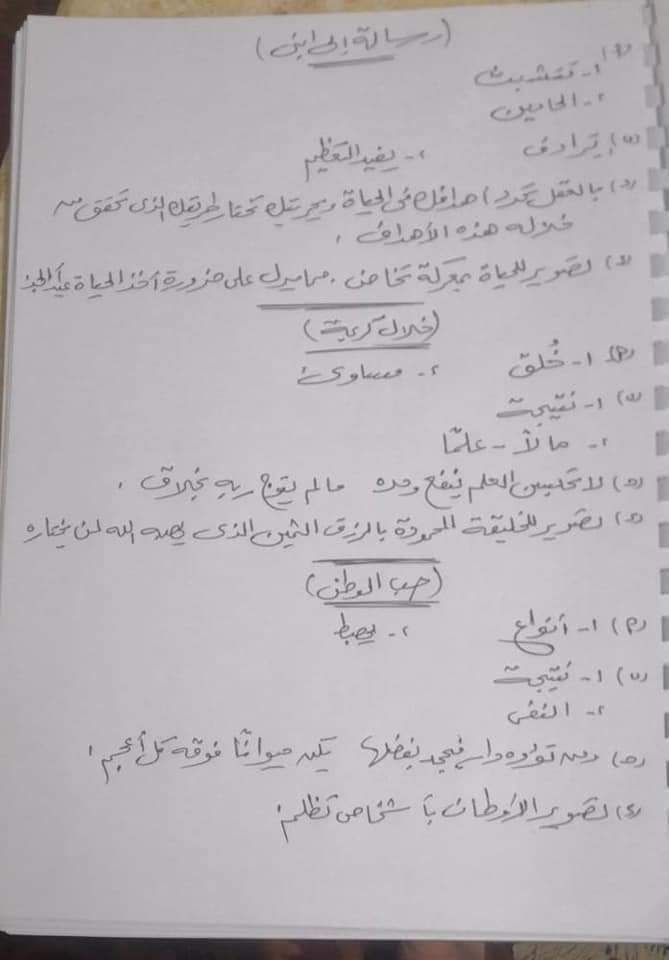 (رسالة إلى ابنى)
(أ) ١- تشبث
٢- الحامين
(ب) ترادف ٢- يفيد التعظيم
(ج) بالعقل تحدد أهدافك فى الحياة وبحريتك تختار طريقك الذى تحقق من
خلاله هذه الأهداف .
(د) تصوير للحياة بمعركة تخاض ، مما يدل على ضرورة أخذ الحياة
(خلال كريمة)
(أ) ١- خُلق ٢- مساوئ
(ب) ١- نتيجة
٢- مالاً - علمًا
(ج) لا تحسبن العلم ينفع وحده ما لم يتوج ربه بخلاق .
(د) تصوير للخليقة المحمودة بالرزق الثمين الذى يهبه الله لمن يختاره
(حب الوطن)
(أ) ١- أنواع ٢- يحبط
(ب) ١- نتيجة
٢- النفى
(ج) ومن تؤوه دار فيجحد بفضلها يكن حيوانًا فوقه كل أعجم .
(د) تصوير الأوطان بأشخاص تظلم .